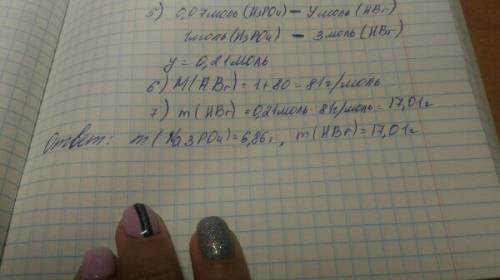 5) 0,07 моль (H₃PO₄) – у моль (HBr)
1 моль (H₃PO₄) – 3 моль (HBr)
у = 0,21 моль
6) M(HBr) = 1+80 = 81 г/моль
7) m(HBr) = 0,21 моль · 81 г/моль = 17,01 г
Ответ: m(Na₃PO₄) = 6,86 г, m(HBr) = 17,01 г